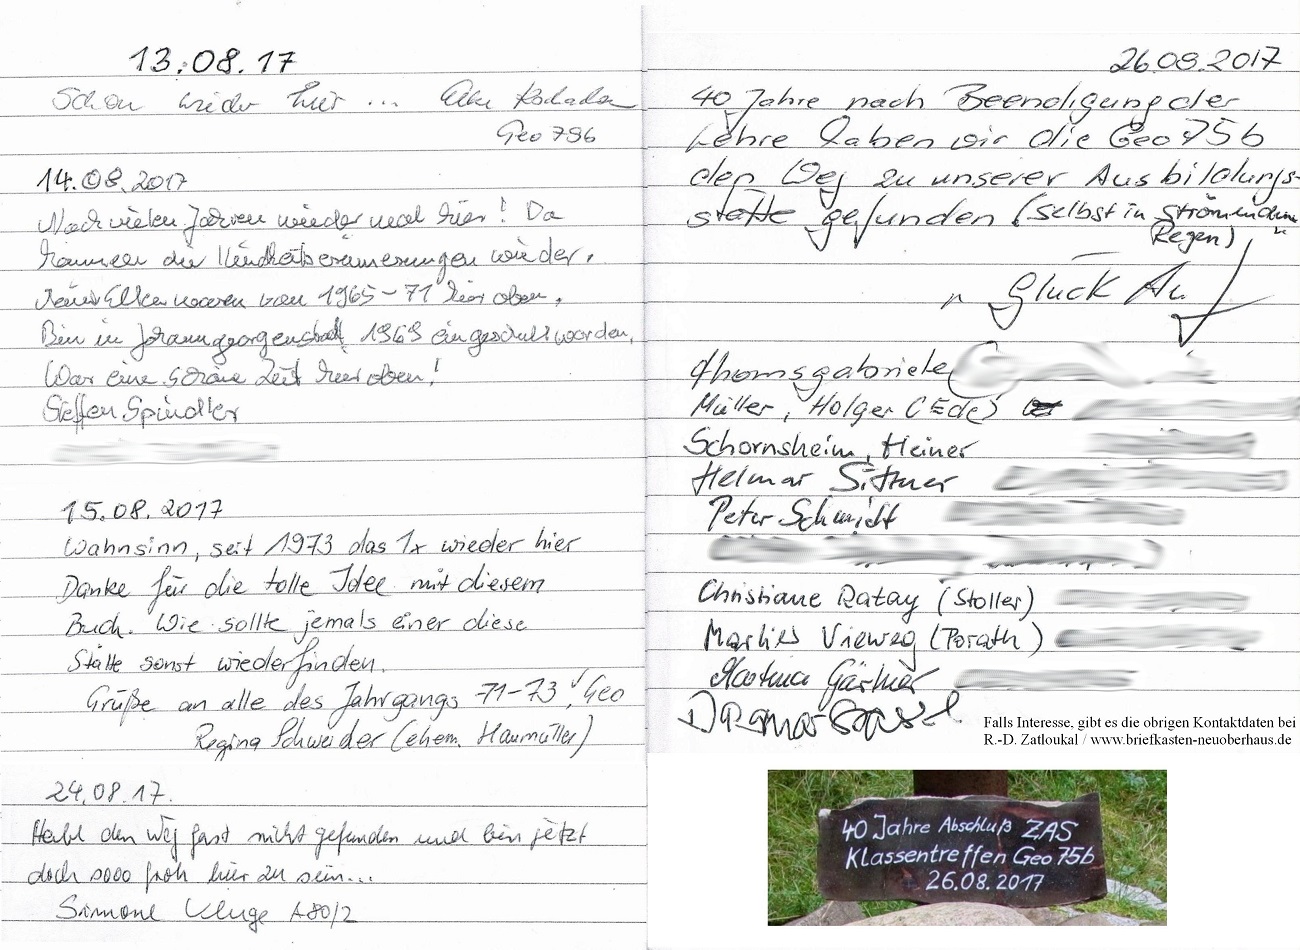 13.08.17
Schon wieder hier ...
Geo 79b
14.08.2017
Nach vielen Jahren wieder mal hier! Da
kommen die Kindheitserinnerungen wieder.
Meine Eltern waren von 1965-71 hier oben.
Bin in Johanngeorgenstadt 1969 eingeschult worden.
War eine schöne Zeit hier oben!
Steffen Spindler
15.08.2017
Wahnsinn, seit 1973 das 1x wieder hier
Danke für die tolle Idee mit diesem
Buch. Wie sollte jemals einer diese
Stätte sonst wiederfinden.
Grüße an alle des Jahrgangs 71-73, Geo
Regina Schneider (ehem. Haumüller)
24.08.17.
Habe den Weg fast nicht gefunden und bin jetzt
doch sooo froh hier zu sein...
Simone Kluge A80/2
26.08.2017
40 Jahre nach Beendigung der
Lehre haben wir die Geo 75b
den Weg zu unserer Ausbildungs-
stätte gefunden (selbst in strömendem
Regen)
"Glück Auf"
Müller, Holger (Ede)
Schornsheim, Heiner
Helmar Sittner
Peter Schmidt
Christiane Ratay (Stoller)
Marlies Vieweg (Porath)
Martina Gärtner
Falls Interesse, gibt es die obrigen Kontaktdaten bei
R.-D. Zatloukal / www.briefkasten-neuoberhaus.de
40 Jahre Abschluß ZAS
Klassentreffen Geo 75b
26.08.2017